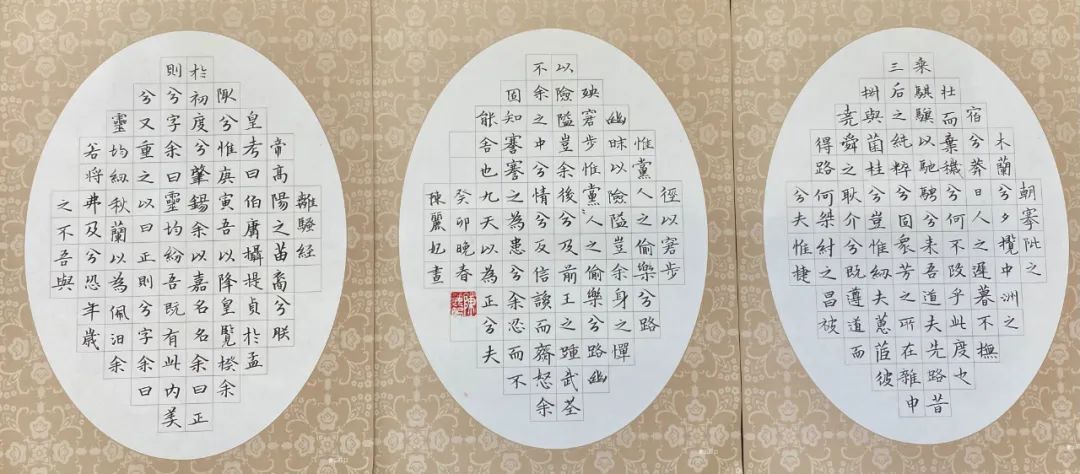 離騷經
帝高陽之苗裔兮朕
皇考曰伯庸攝提貞於孟
陬兮惟庚寅吾以降皇覽揆余
於初度兮肇錫余以嘉名名余曰正
則兮字余曰靈均紛吾既有此內美
兮又重之以曰正則兮字余曰
靈均紉秋蘭以為佩汨余
若將弗及兮恐年歲
之不吾與
徑以窘步
惟黨人之偷樂兮路
幽昧以險隘豈余身之憚
殃窘步惟黨人之偷樂兮路幽
以險隘豈余後兮及前王之踵武荃
不余之中兮情兮反信讒而齌怒余
固知謇謇之為患兮余忍而不
能舍也九天以為正兮夫
癸卯晚春
陳麗書
朝搴阰之
木蘭兮夕攬中洲之
宿兮莽日人之遲暮不撫
壯而棄穢兮何不改乎此度也
乘騏驥以馳騁兮来吾道夫先路昔
三后之純粹兮固衆芳之所在雜申
椒與菌桂兮豈惟紉夫蕙茝彼
堯舜之耿介兮既遵道而
得路何桀紂之昌被
兮夫惟捷